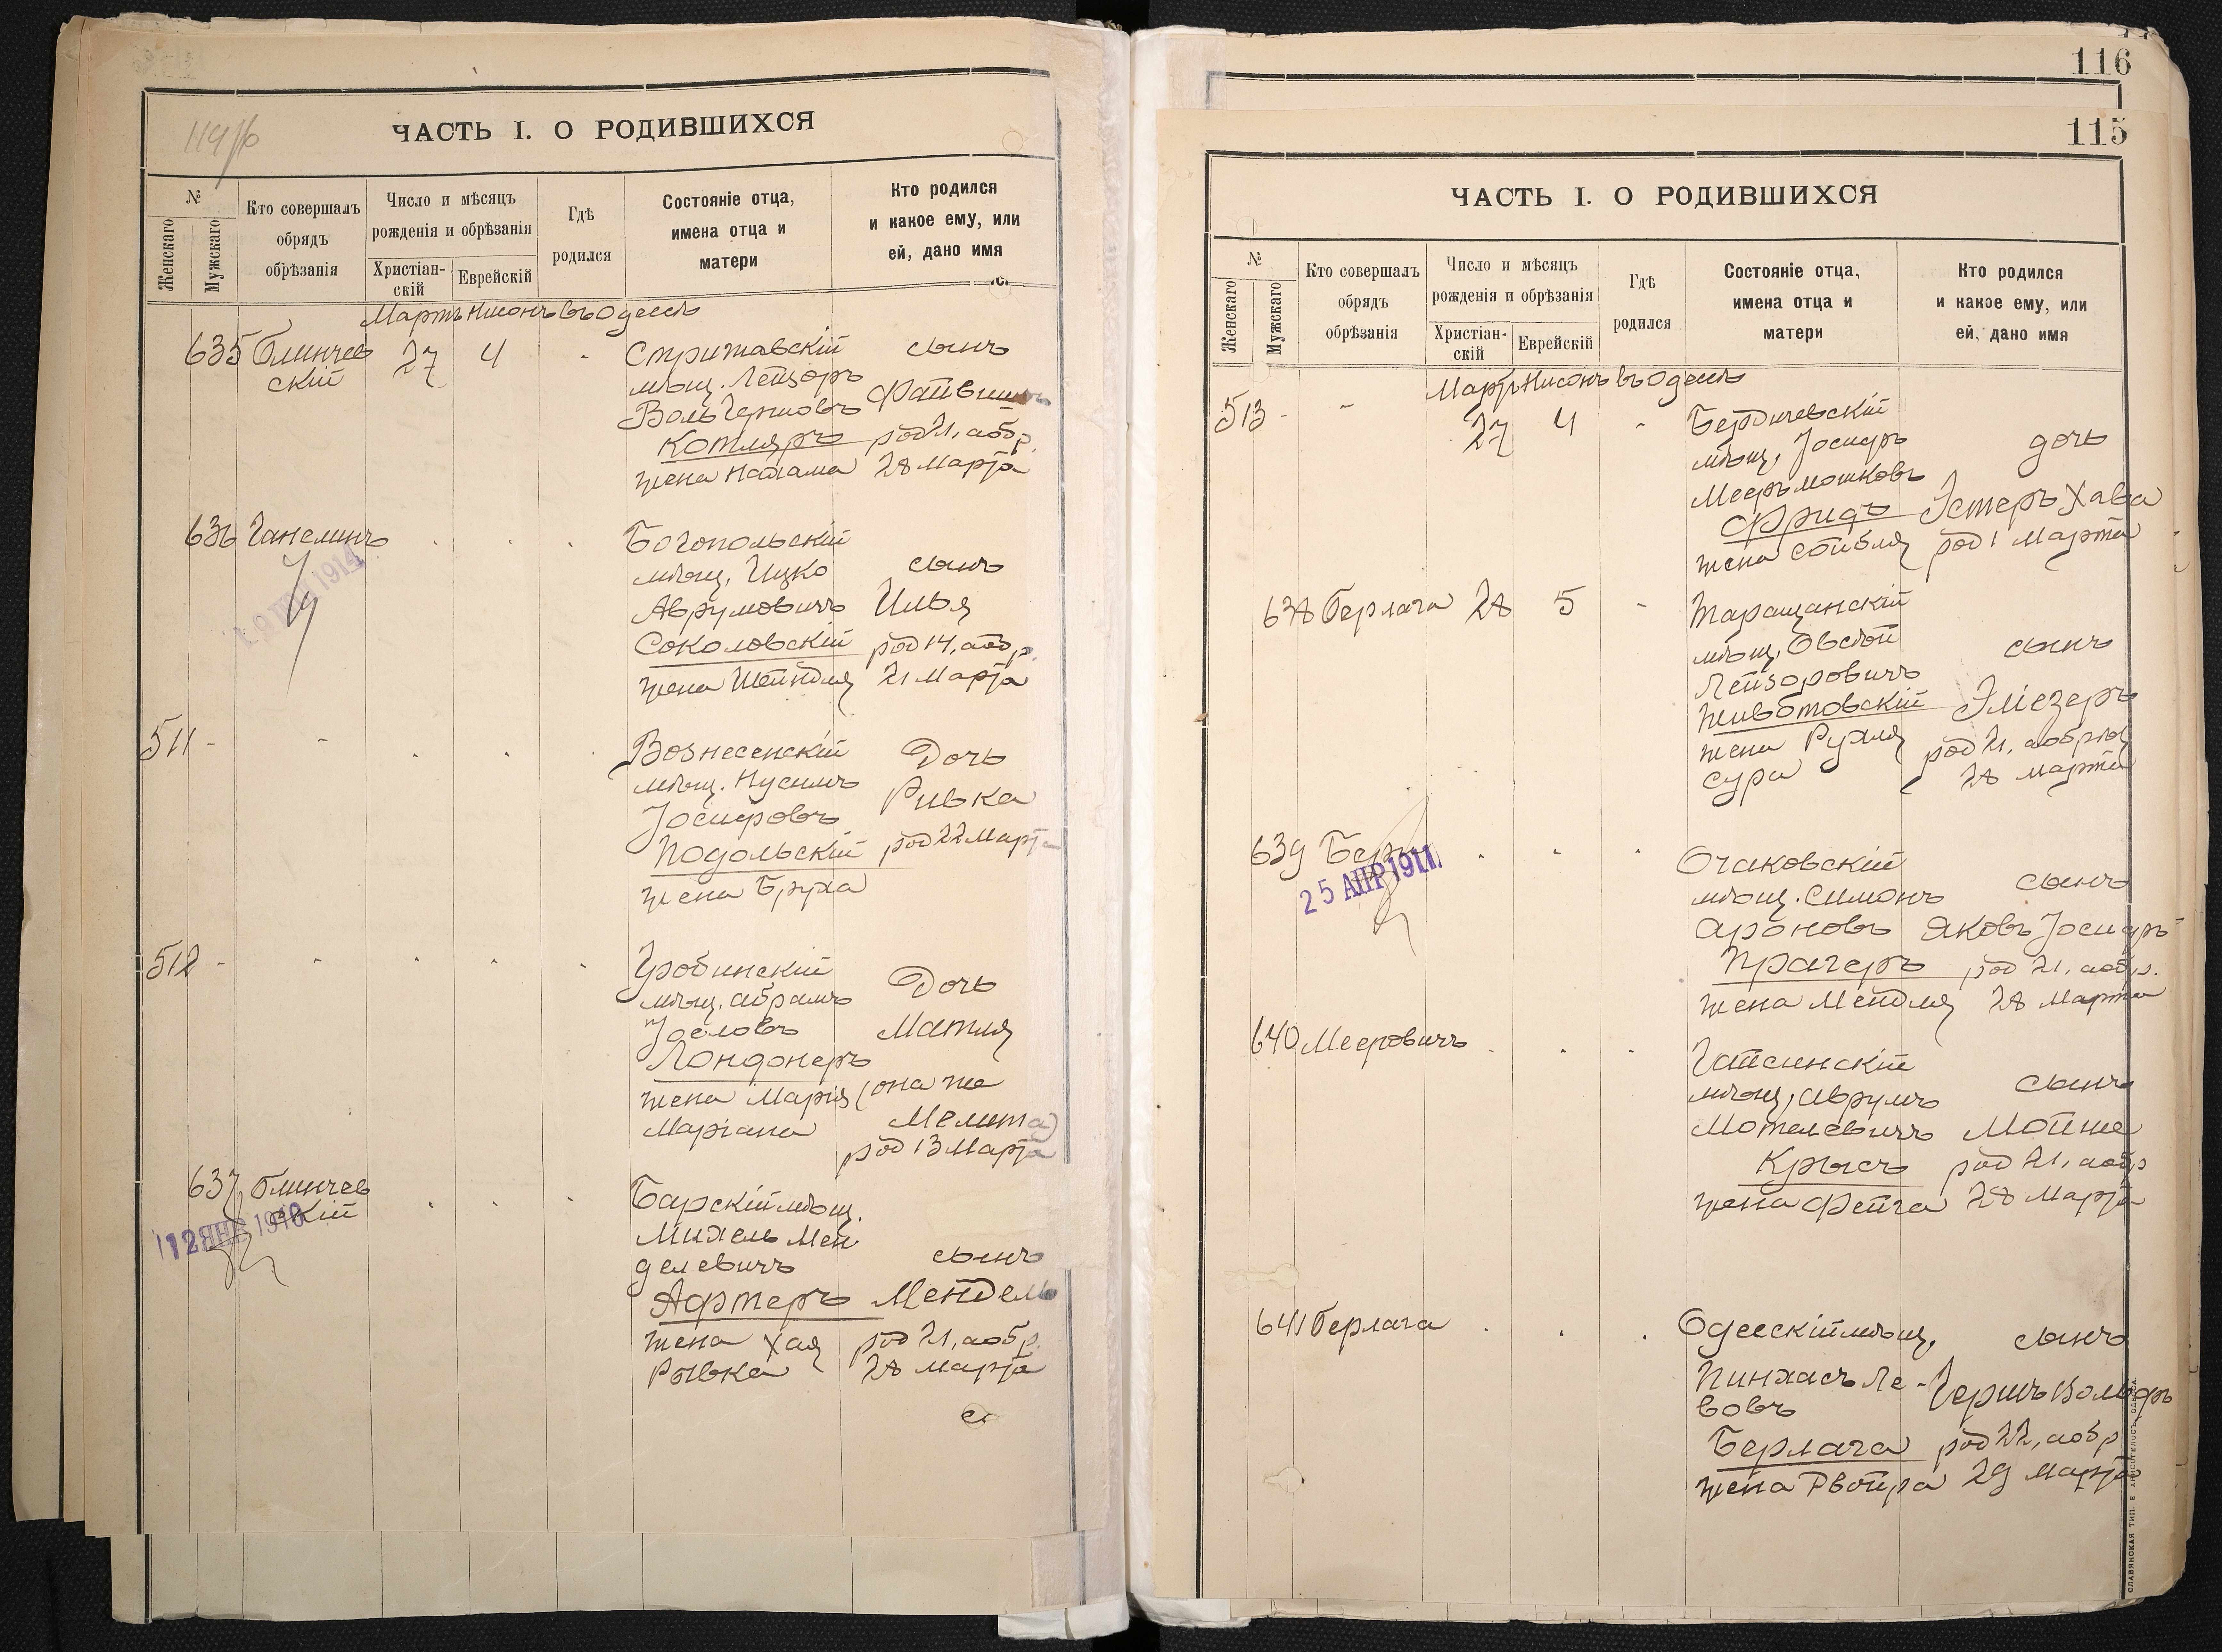 114/б
ЧАСТЬ I. О РОДИВШИХСЯ
№
Женскаго
Мужскаго
Кто совершалъ
обрядъ
обрѣзанія
Число и мѣсяцъ
рожденія и обрѣзанія
Христіан-
скій
Еврейскій
Гдѣ
родился
Состояніе отца,
имена отца и
матери
Кто родился
и какое ему, или
ей, дано имя
Мартъ Нисонъ въ Одессѣ
635 Блинчев
скій
27 4
Стрижавскій
мѣщ. Лейзоръ
Воль Гершовъ
Котляръ
жена Нахама
сынъ
Файвишъ
род 21, а обр.
28 Марта
636 Ганелинъ
1914
Богопольскій
мѣщ. Ицко
Аврумовичъ
Соколовскій
жена Шейндля
сынъ
Илья
род 14, а обр.
21 Марта
511 -
Вознесенскій
мѣщ. Нусимъ
Іосифовъ
Подольскій
жена Бруха
Дочь
Ривка
род 22 Марта
512 -
мѣщ. Абрамъ
Іословъ
Лондонеръ
жена Марія
Маріана
Дочь
Матля
(она же
Мелита)
род 13 Марта
637 Блинчев
скій
12 ЯНВ 1910
Барскій мѣщ.
Михель Мен
делевичъ
Афтеръ
жена Хая
Рывка
сынъ
Мендель
род 21, а обр.
28 Марта
116
115
ЧАСТЬ I. О РОДИВШИХСЯ
№
Женскаго
Мужскаго
Кто совершалъ
обрядъ
обрѣзанія
Число и мѣсяцъ
рожденія и обрѣзанія
Христіан-
скій
Еврейскій
Гдѣ
родился
Состояніе отца,
имена отца и
матери
Кто родился
и какое ему, или
ей, дано имя
Мартъ Нисонъ въ Одессѣ
513 -
27 4
Бердичевскій
мѣщ. Іосифъ
Мееръ Мошковъ
Фридъ
жена Сойбля
дочь
Эстеръ Хава
род 1 Марта
638 Берлага 28 5
Таращанскій
мѣщ. Овсѣй
Лейзоровичъ
Животовскій
жена Рухля
Сура
сынъ
Эліезеръ
род 21, а обрѣз
28 Марта
639
25 АПР 1911
Очаковскій
мѣщ. Симонъ
Ароновъ
Прагеръ
жена Мендля
сынъ
Яковъ Іосифъ
род 21, а обр.
28 Марта
640 Мееровичъ
Гайсинскій
мѣщ. Аврумъ
Мотелевичъ
Крысъ
жена Фейга
сынъ
Мойше
род 21, а обр
28 Марта
641 Берлага
Одесскій мѣщ.
Пинхасъ Ле-
вовъ
Берлага
жена Двойра
сынъ
Гершъ Вольфъ
род 22, а обр
29 Марта
СЛАВЯНСКАЯ ТИП. Е. ХРИСОГЕЛОСЪ, ОДЕССА